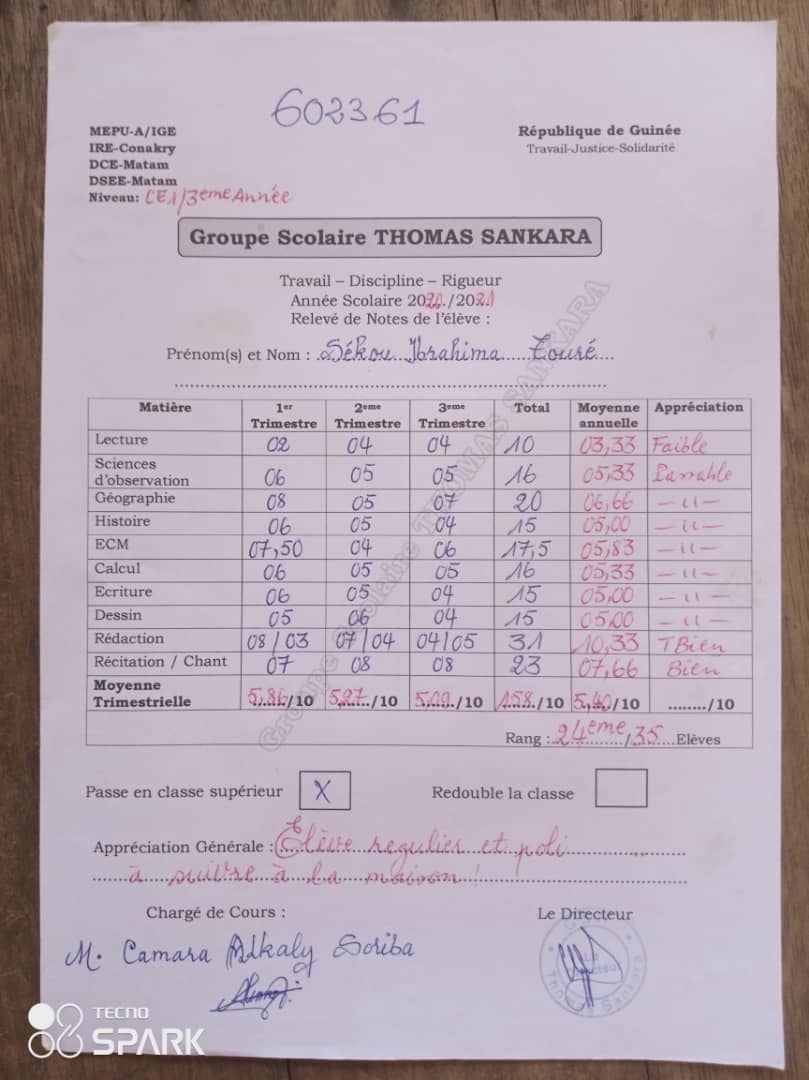 602361
MEPU-A/IGE
IRE-Conakry
DCE-Matam
DSEE-Matam
Niveau: CE1/3eme Année
République de Guinée
Travail-Justice-Solidarité
Groupe Scolaire THOMAS SANKARA
Travail – Discipline – Rigueur
Année Scolaire 2020./2021
Relevé de Notes de l'élève :
Prénom(s) et Nom : Sékou Ibrahima Touré
Matière 1er Trimestre 2eme Trimestre 3eme Trimestre Total Moyenne annuelle Appréciation
Lecture 02 04 04 10 03,33 Faible
Sciences d'observation 06 05 05 16 05,33 Passable
Géographie 08 05 07 20 06,66 —11—
Histoire 06 05 04 15 05,00 —11—
ECM 07,50 04 06 17,5 05,83 —11—
Calcul 06 05 05 16 05,33 —11—
Ecriture 06 05 04 15 05,00 —11—
Dessin 05 06 04 15 05,00 —11—
Rédaction 08/03 07/04 04/05 31 10,33 TBien
Récitation / Chant 07 08 08 23 07,66 Bien
Moyenne Trimestrielle 5,86/10 5,27/10 5,09/10 158/10 5,40/10 ......../10
Rang : 24eme/35 Elèves
Passe en classe supérieur X Redouble la classe
Appréciation Générale : Elève regulier et poli
à suivre à la maison !
Chargé de Cours :
Le Directeur
M. Camara Alkaly Soriba
Groupe Scolaire THOMAS SANKARA
TECNO
SPARK